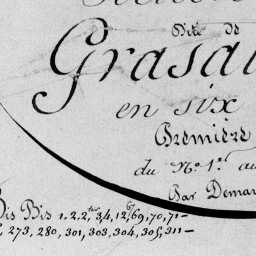 Dite de
Grasal
en six
Première
du N° 1er au
Par Demar
Bis Bis 1. 2. 2ter, 3, 4, 12, 69, 70, 71 —
273, 280, 301, 303, 304, 305, 311 —